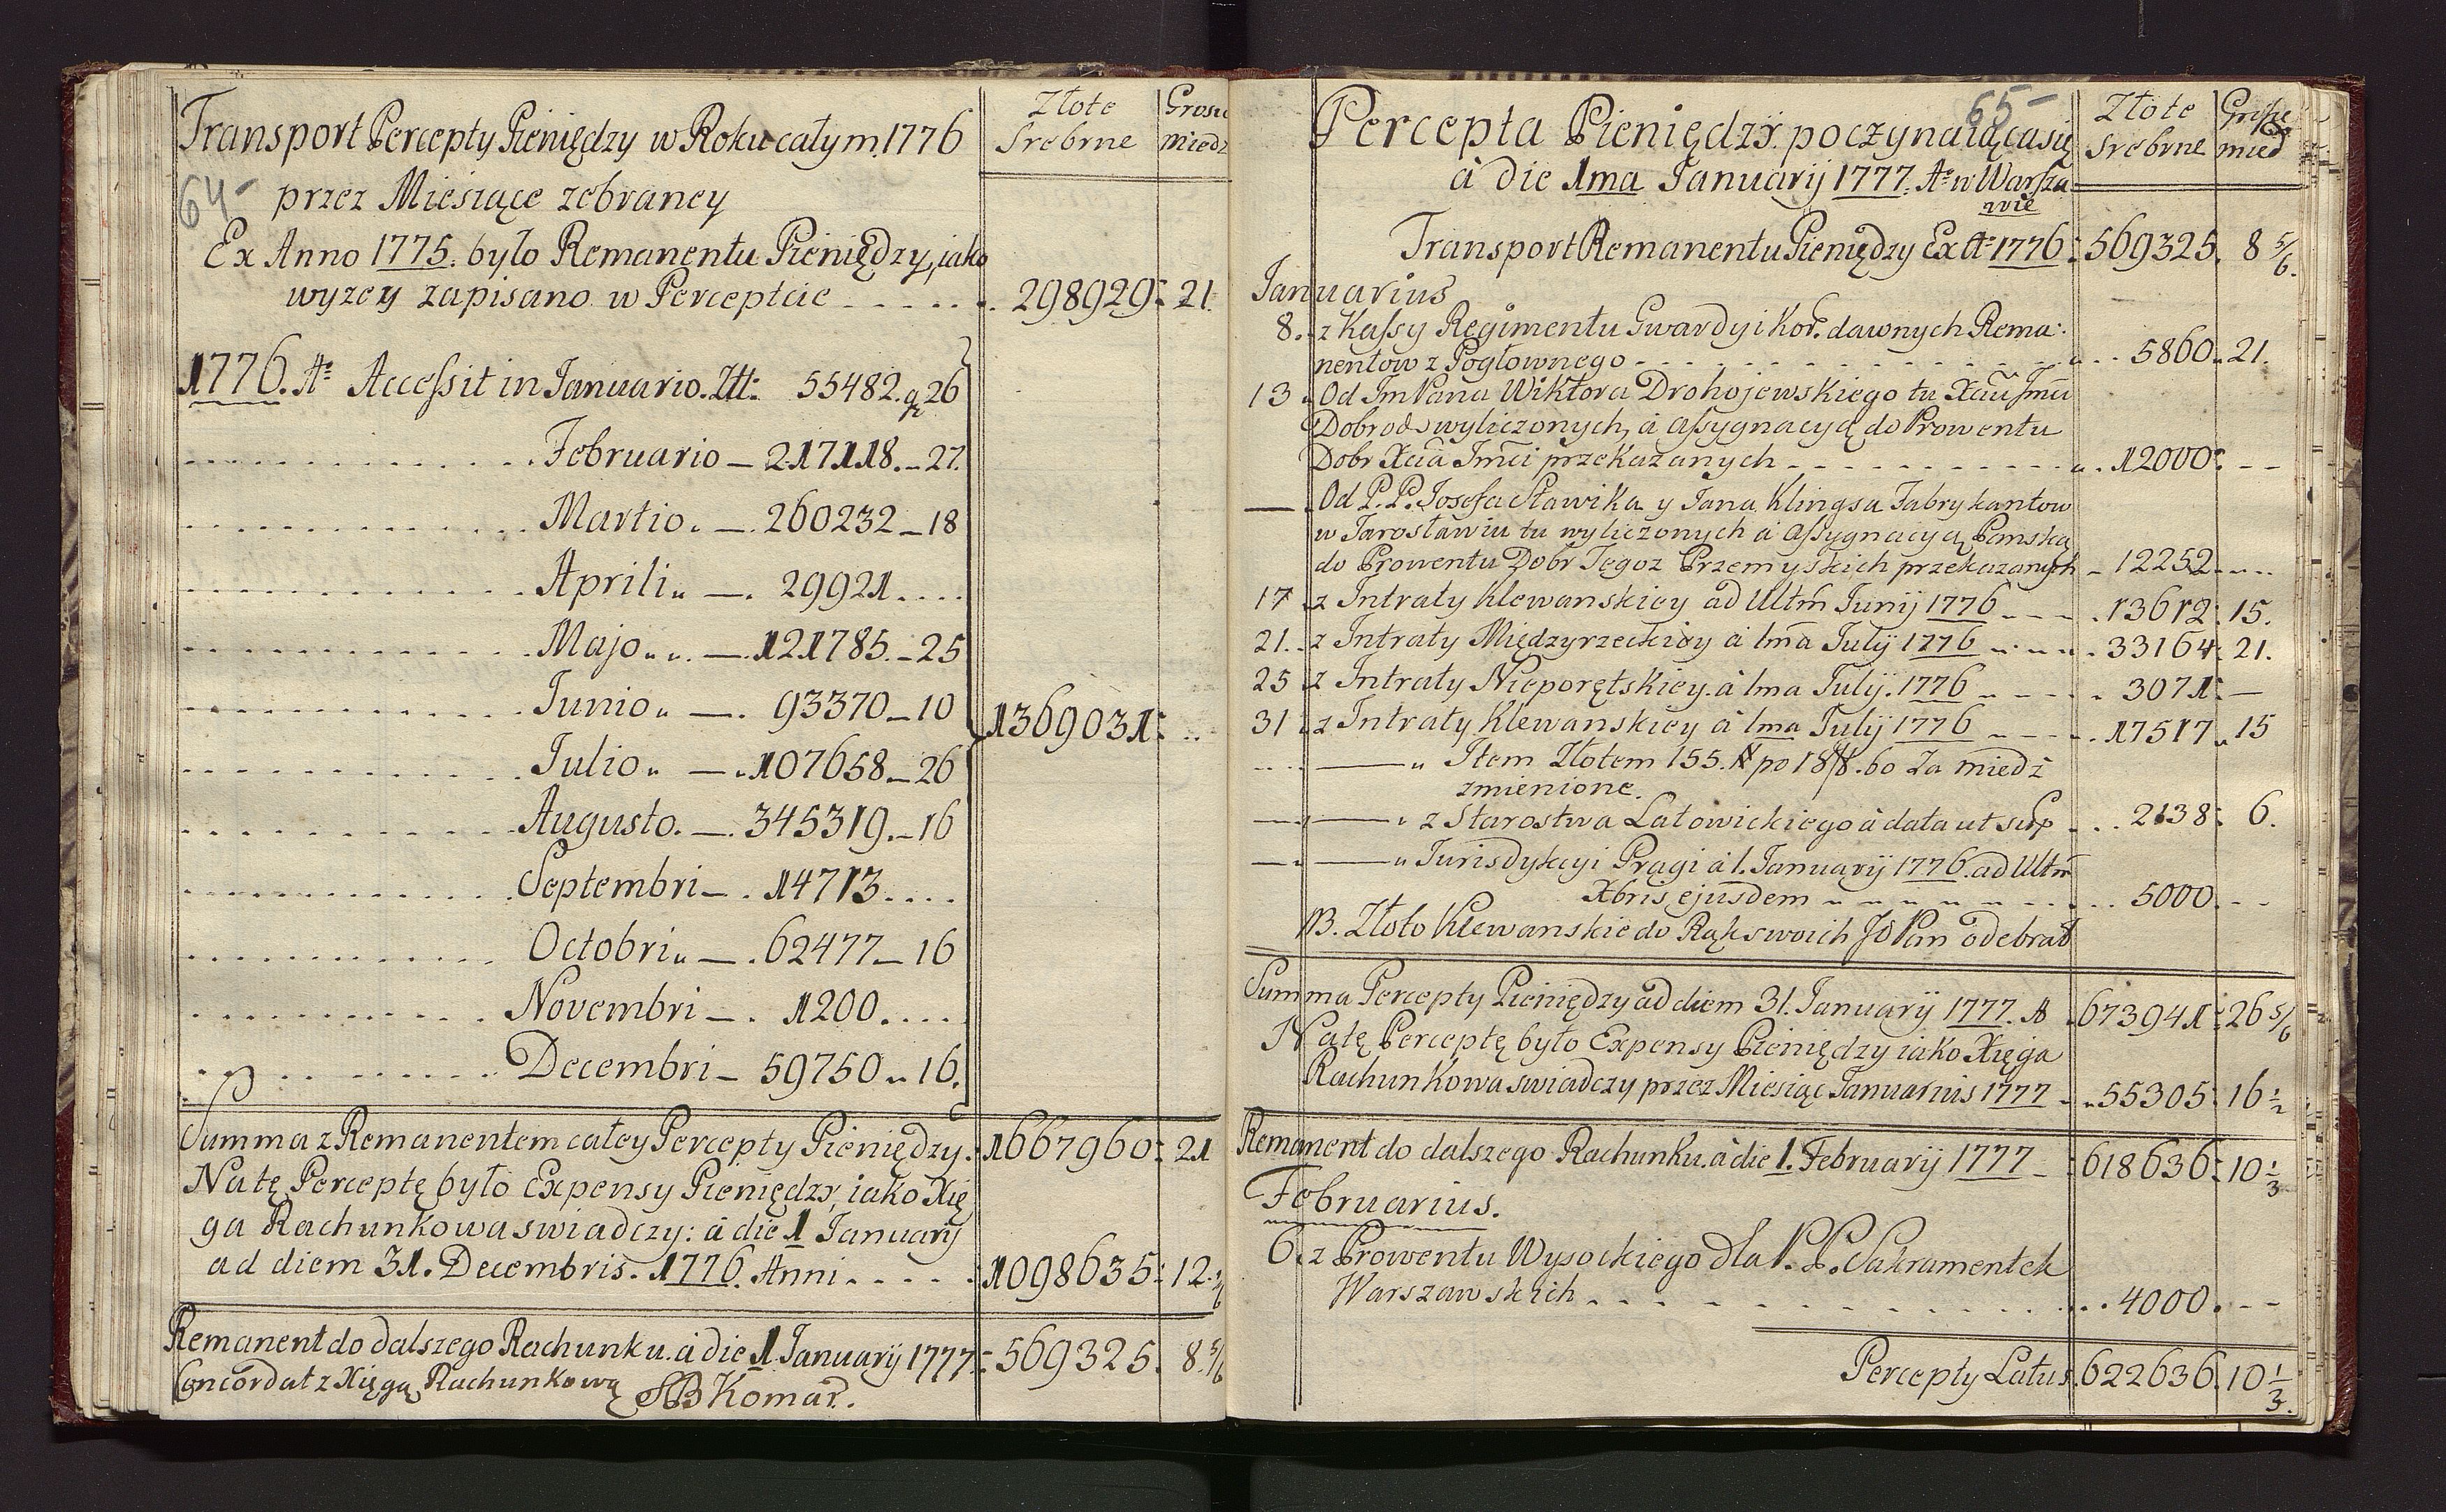 Złote Grosze
Transport Percepty Pieniędzy w Roku całym 1776 Srebrne miedz
64- przez Miesiące zebraney
Ex Anno 1775. było Remanentu Pieniędzy, iako
wyzey zapisano w Perceptcie - - - - - . 298929: 21.
1776. Aº Accessit in Ianuario. Złł: 55482. gr 26
Februario - 217118. - 27.
Martio. - . 260232 - 18
Aprili „ - . 29921 . . . .
Majo „ „ . - . 121785. - 25
Iunio „ - . 93370 - 10
1369031: ..
Iulio „ - „ 107658 - 26
Augusto. - . 345319. - 16
Septembri - . 14713 . . . .
Octobri „ - . 62477 - 16
Novembri - . 1200 . . . .
Decembri - 59750 „ 16.
Summa z Remanentem całey Percepty Pieniędzy. 1667960: 21
Na tę Perceptę było Expensy Pieniędzy, iako Xię
ga Rachunkowa swiadczy: à die 1 Ianuarij
ad diem 31. Decembris. 1776. Anni . - - - - 1098635: 12. 1/6
Remanent do dalszego Rachunku. à die 1. Ianuarij 1777. 569325. 8. 5/6
Concordat z Xięgą Rachunkową Komar.
65-
Percepta Pieniędzÿ. poczynaiąca się Złote Grosze
à die 1ma Ianuarij 1777. Aº w Warsza Srebrne mied
wie
Transport Remanentu Pieniędzy Ex Aº 1776: 569325. 8 5/6.
Ianuarius
8. z Kassy Regimentu Gwardyi Kor. dawnych Rema:
nentow z Pogłownego - - - - - - - „ . . 5860 „ 21.
13 „ Od Jm Pana Wiktora Drohojewskiego tu Xciu Jmci
Dobrod. wyliczonych, à assygnacyą do Prowentu
Dobr Xcia Jmci przekazanych - - - - - - „ . 12000: - -
— „ Od P. P. Iosefa Sławika y Iana Klingsa Fabrykantow
w Iarosławiu tu wyliczonych à Assygnacyą Panską
do Prowentu Dobr Tegoz Przemyskich przekazanych - 12252 . . . .
17 „ z Intraty Klewanskiey ad Ultm Iunij 1776 - - - . 13612: 15.
21. „ z Intraty Międzyrzeckiey à 1ma Iulij 1776 „ . „ . „ . 33164: 21.
25 „ z Intraty Nieporętskiey. à 1ma Iulij. 1776 „ - - - „ 3071: —
31 „ z Intraty Klewanskiey à 1ma Iulij 1776 „ - - - „ . 17517 „ 15
— „ Item Złotem 155. # po 18 #. 60 Za miedz
zmienione.
— „ — „ z Starostwa Latowickiego à data ut sup . . . 2138: 6.
— „ — „ Iurisdykcyi Pragi à 1. Ianuarij 1776. ad Ultm
Xbris ejusdem „ - „ - „ - „ - . . . 5000. - -
NB. Złoto Klewanskie do Rąk swoich JO Pan odebrał
Summa Percepty Pieniędzy ad diem 31. Ianuarij 1777. A 673941: 26 5/6
Na tę Perceptę było Expensy Pieniędzy iako Xięga
Rachunkowa swiadczy przez Miesiąc Ianuarius 1777 - „ 55305: 16 1/2
Remanent do dalszego Rachunku. à die 1. Februarij 1777 - 618636: 10 1/3
Februarius.
6. z Prowentu Wysockiego dla P. P. Sakramentek
Warszawskich - - - - - - - - . . . 4000. - -
Percepty Latus. 622636. 10 1/3.